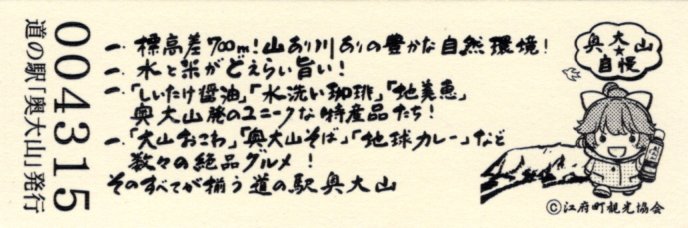 004315
道の駅「奥大山」発行
一、標高差700m!山あり川ありの豊かな自然環境!
一、水と米がどえらい旨い!
一、「しいたけ醤油」「水洗い珈琲」「地美恵」
奥大山発のユニークな特産品たち!
一、「大山おこわ」「奥大山そば」「地球カレー」など
数々の絶品グルメ!
そのすべてが揃う道の駅奥大山
奥大山
★
自慢
©江府町観光協会